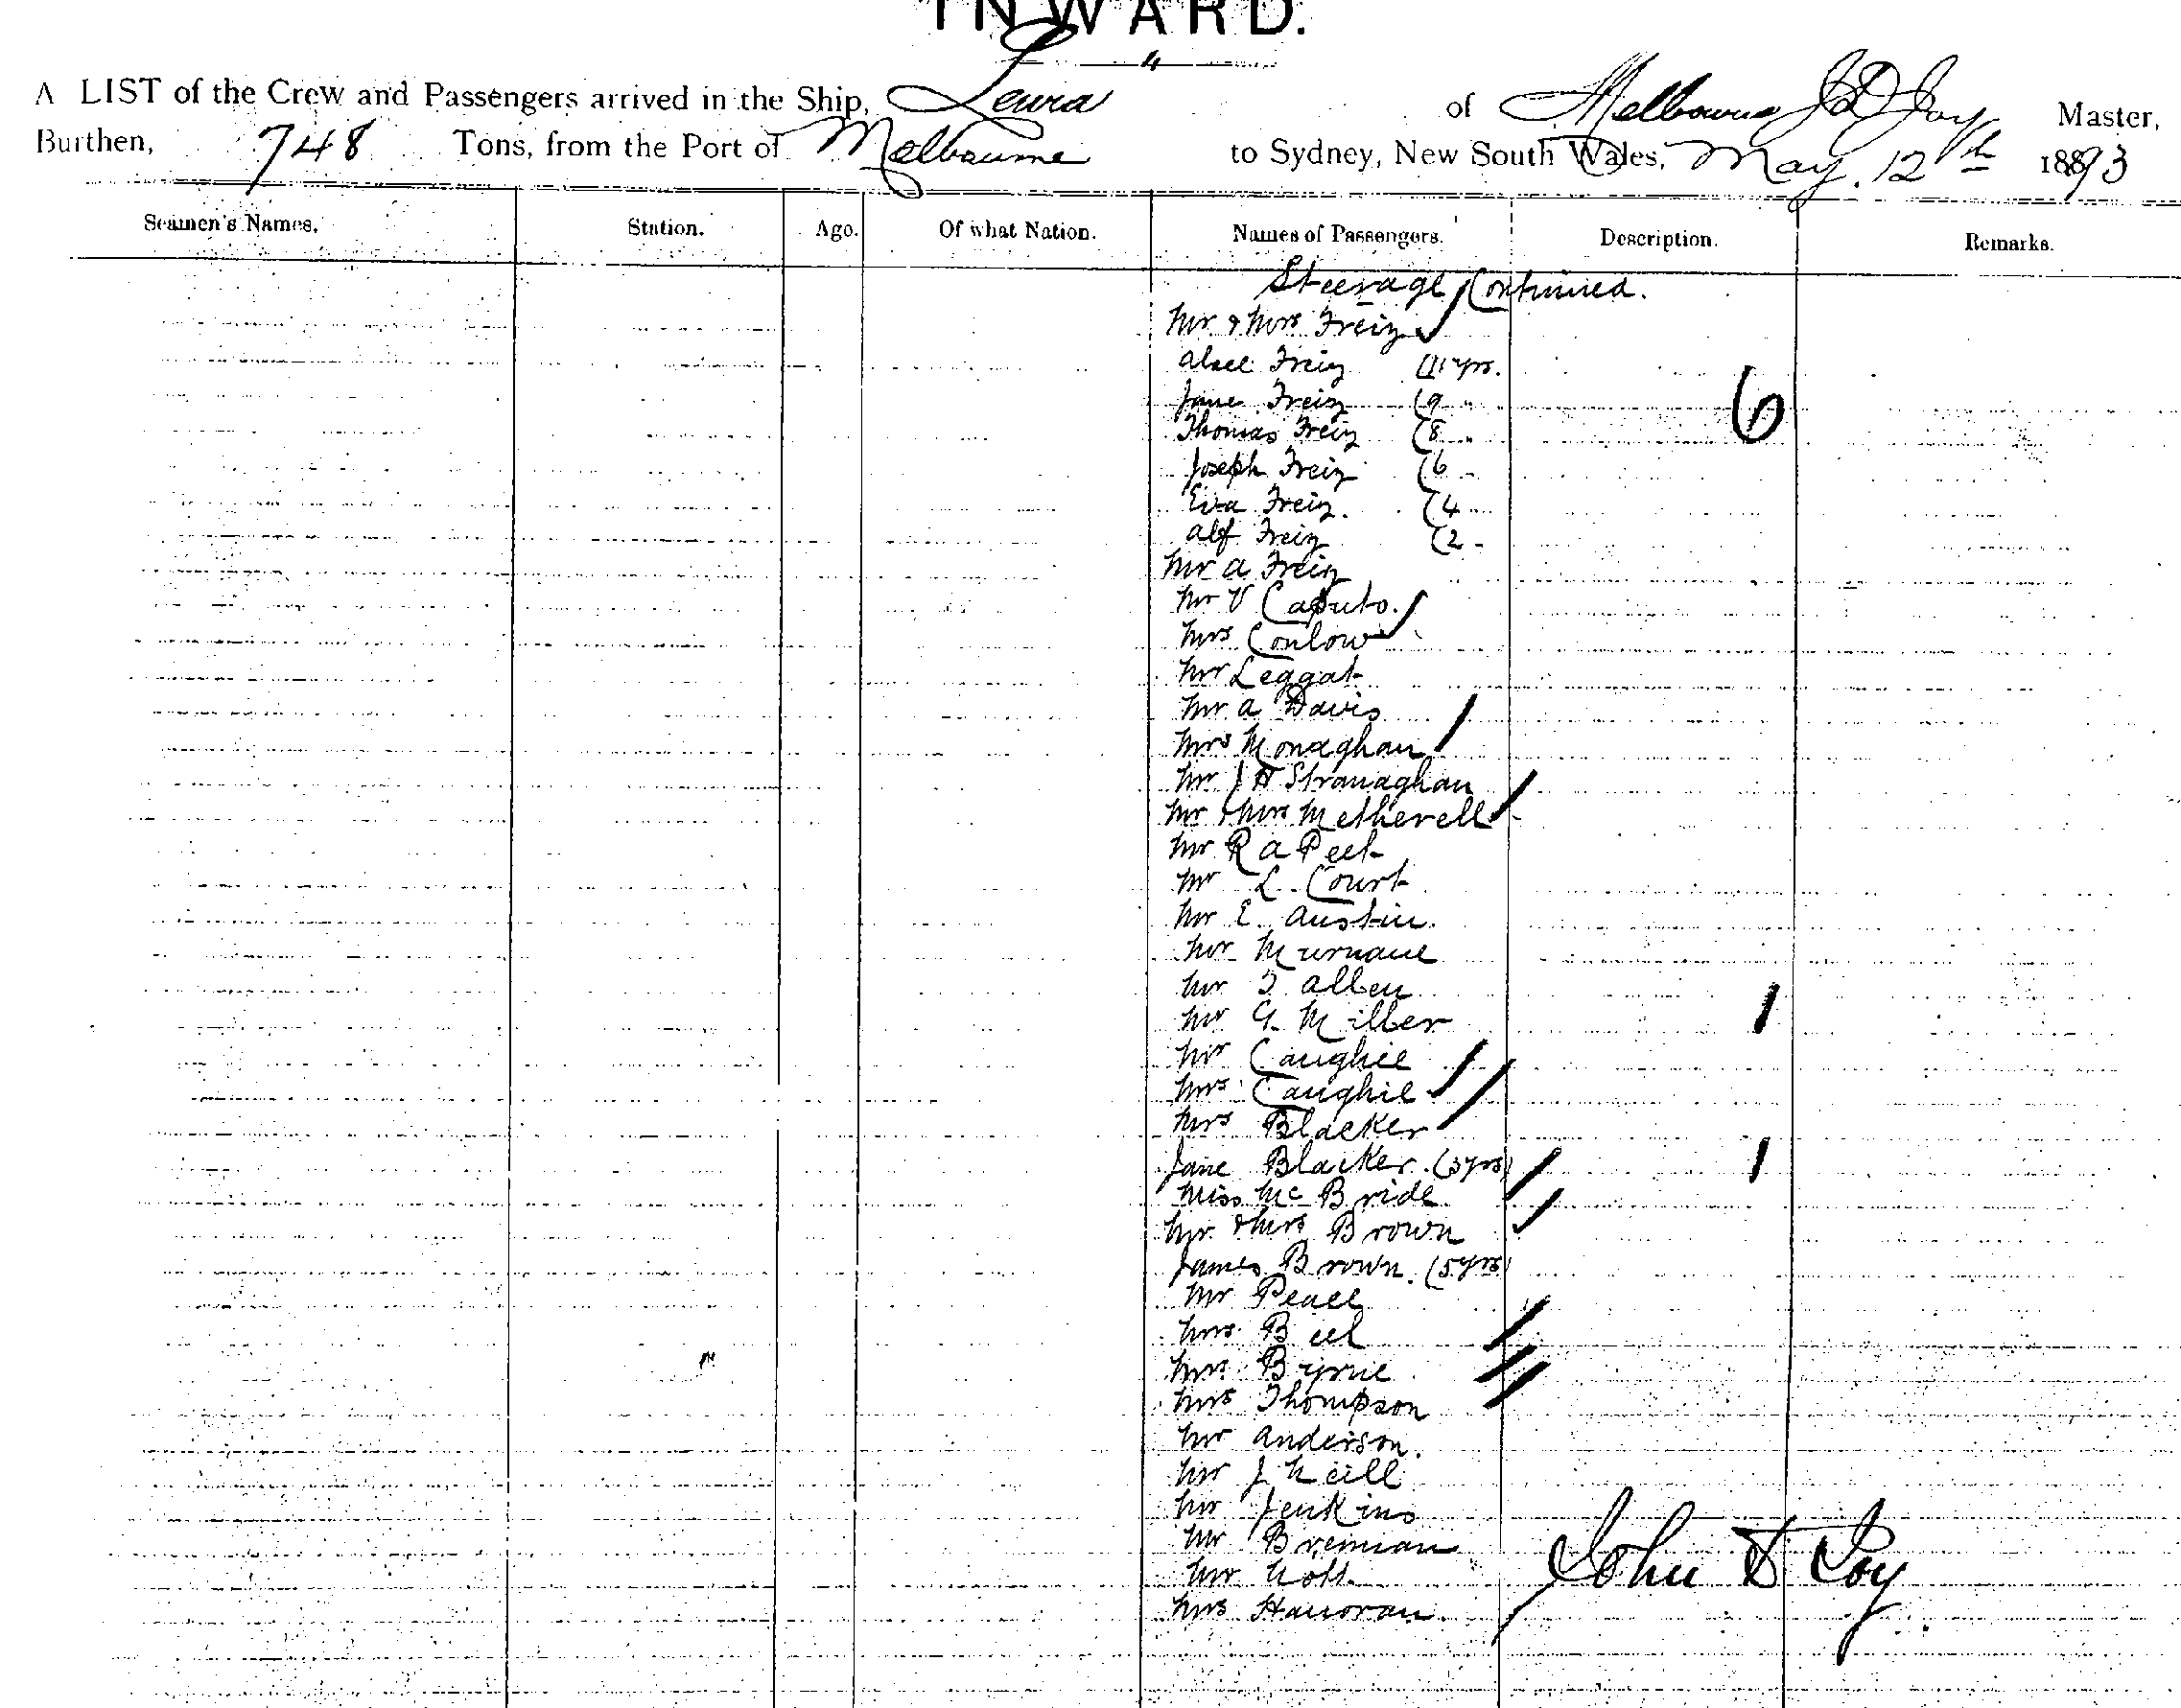 INWARD.
A LIST of the Crew and Passengers arrived in the Ship, of Melbourne J D Joy Master,
Burthen, 748 Tons, from the Port of Melbourne to Sydney, New South Wales, May. 12th 1893
Seamen's Names. Station. Age. Of what Nation. Names of Passengers. Description. Remarks.
Steerage Continued.
Mr & Mrs Freiz
Freiz (11 yrs.
Jane Freiz (9 "
Thomas Freiz (8 "
Joseph Freiz (6 "
Eva Freiz. (4 "
Alf Freiz (2 "
6
Mr A Freiz
Mr V Caputo.
Mrs Conlow
Mr Leggat
Mr A Davis
Mrs Monaghan
Mr J H Stranaghan
Mr & Mrs Metherell
Mr R A Peet
Mr L. Court
Mr E. Austin.
Mr Murnane
Mr T Allen
Mr G. Miller
1
Mr Caughie
Mrs Caughie
Mrs Blacker
Jane Blacker. (3 yrs)
1
Miss McBride
Mr & Mrs Brown
James Brown. (5 yrs)
Mr
Mrs
Mrs Byrne
Mrs Thompson
Mr Anderson.
Mr J Neill
Mr Jenkins
Mr Brennan
Mr Nott
Mrs Hanoran.
John D Joy